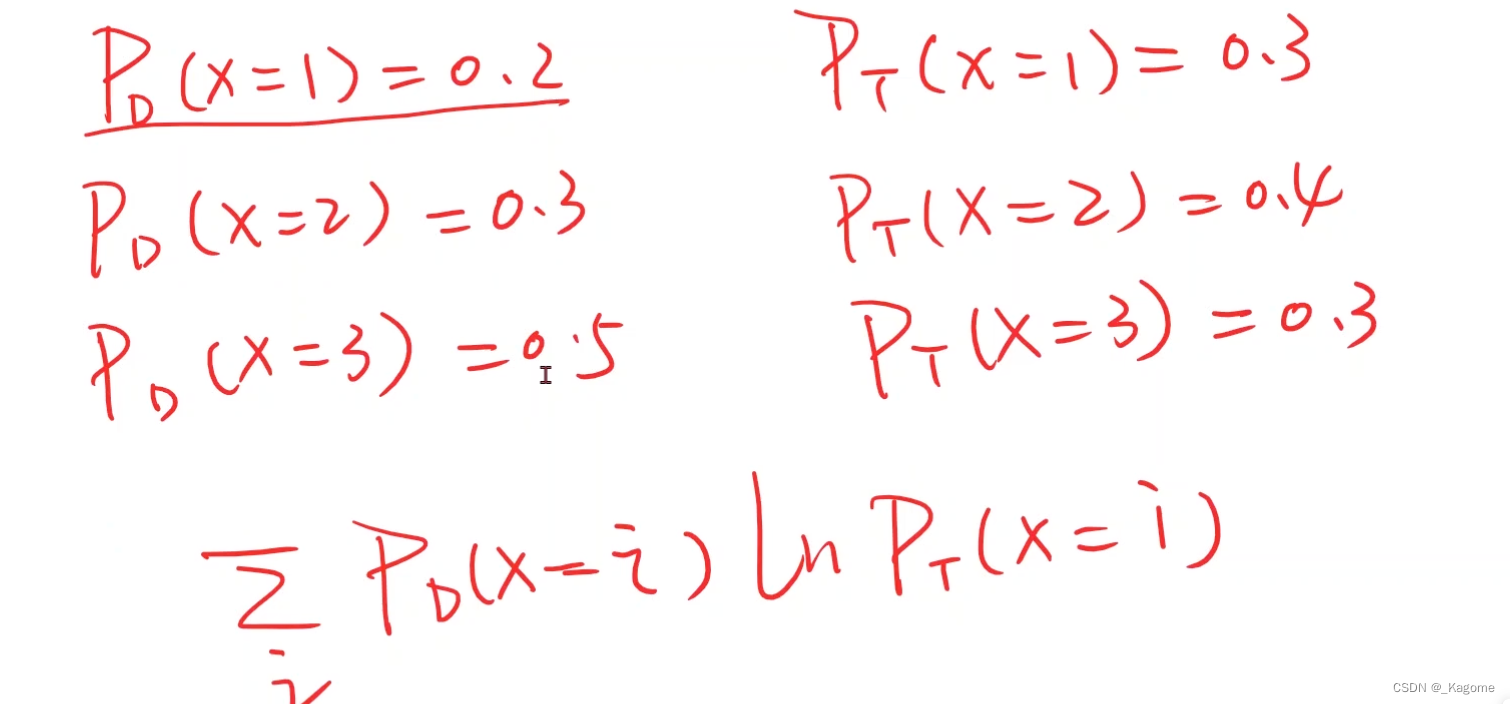 P_D(x=1)=0.2
P_T(x=1)=0.3
P_D(x=2)=0.3
P_T(x=2)=0.4
P_D(x=3)=0.5
P_T(x=3)=0.3
∑_i P_D(x=i) ln P_T(x=i)
CSDN @_Kagome